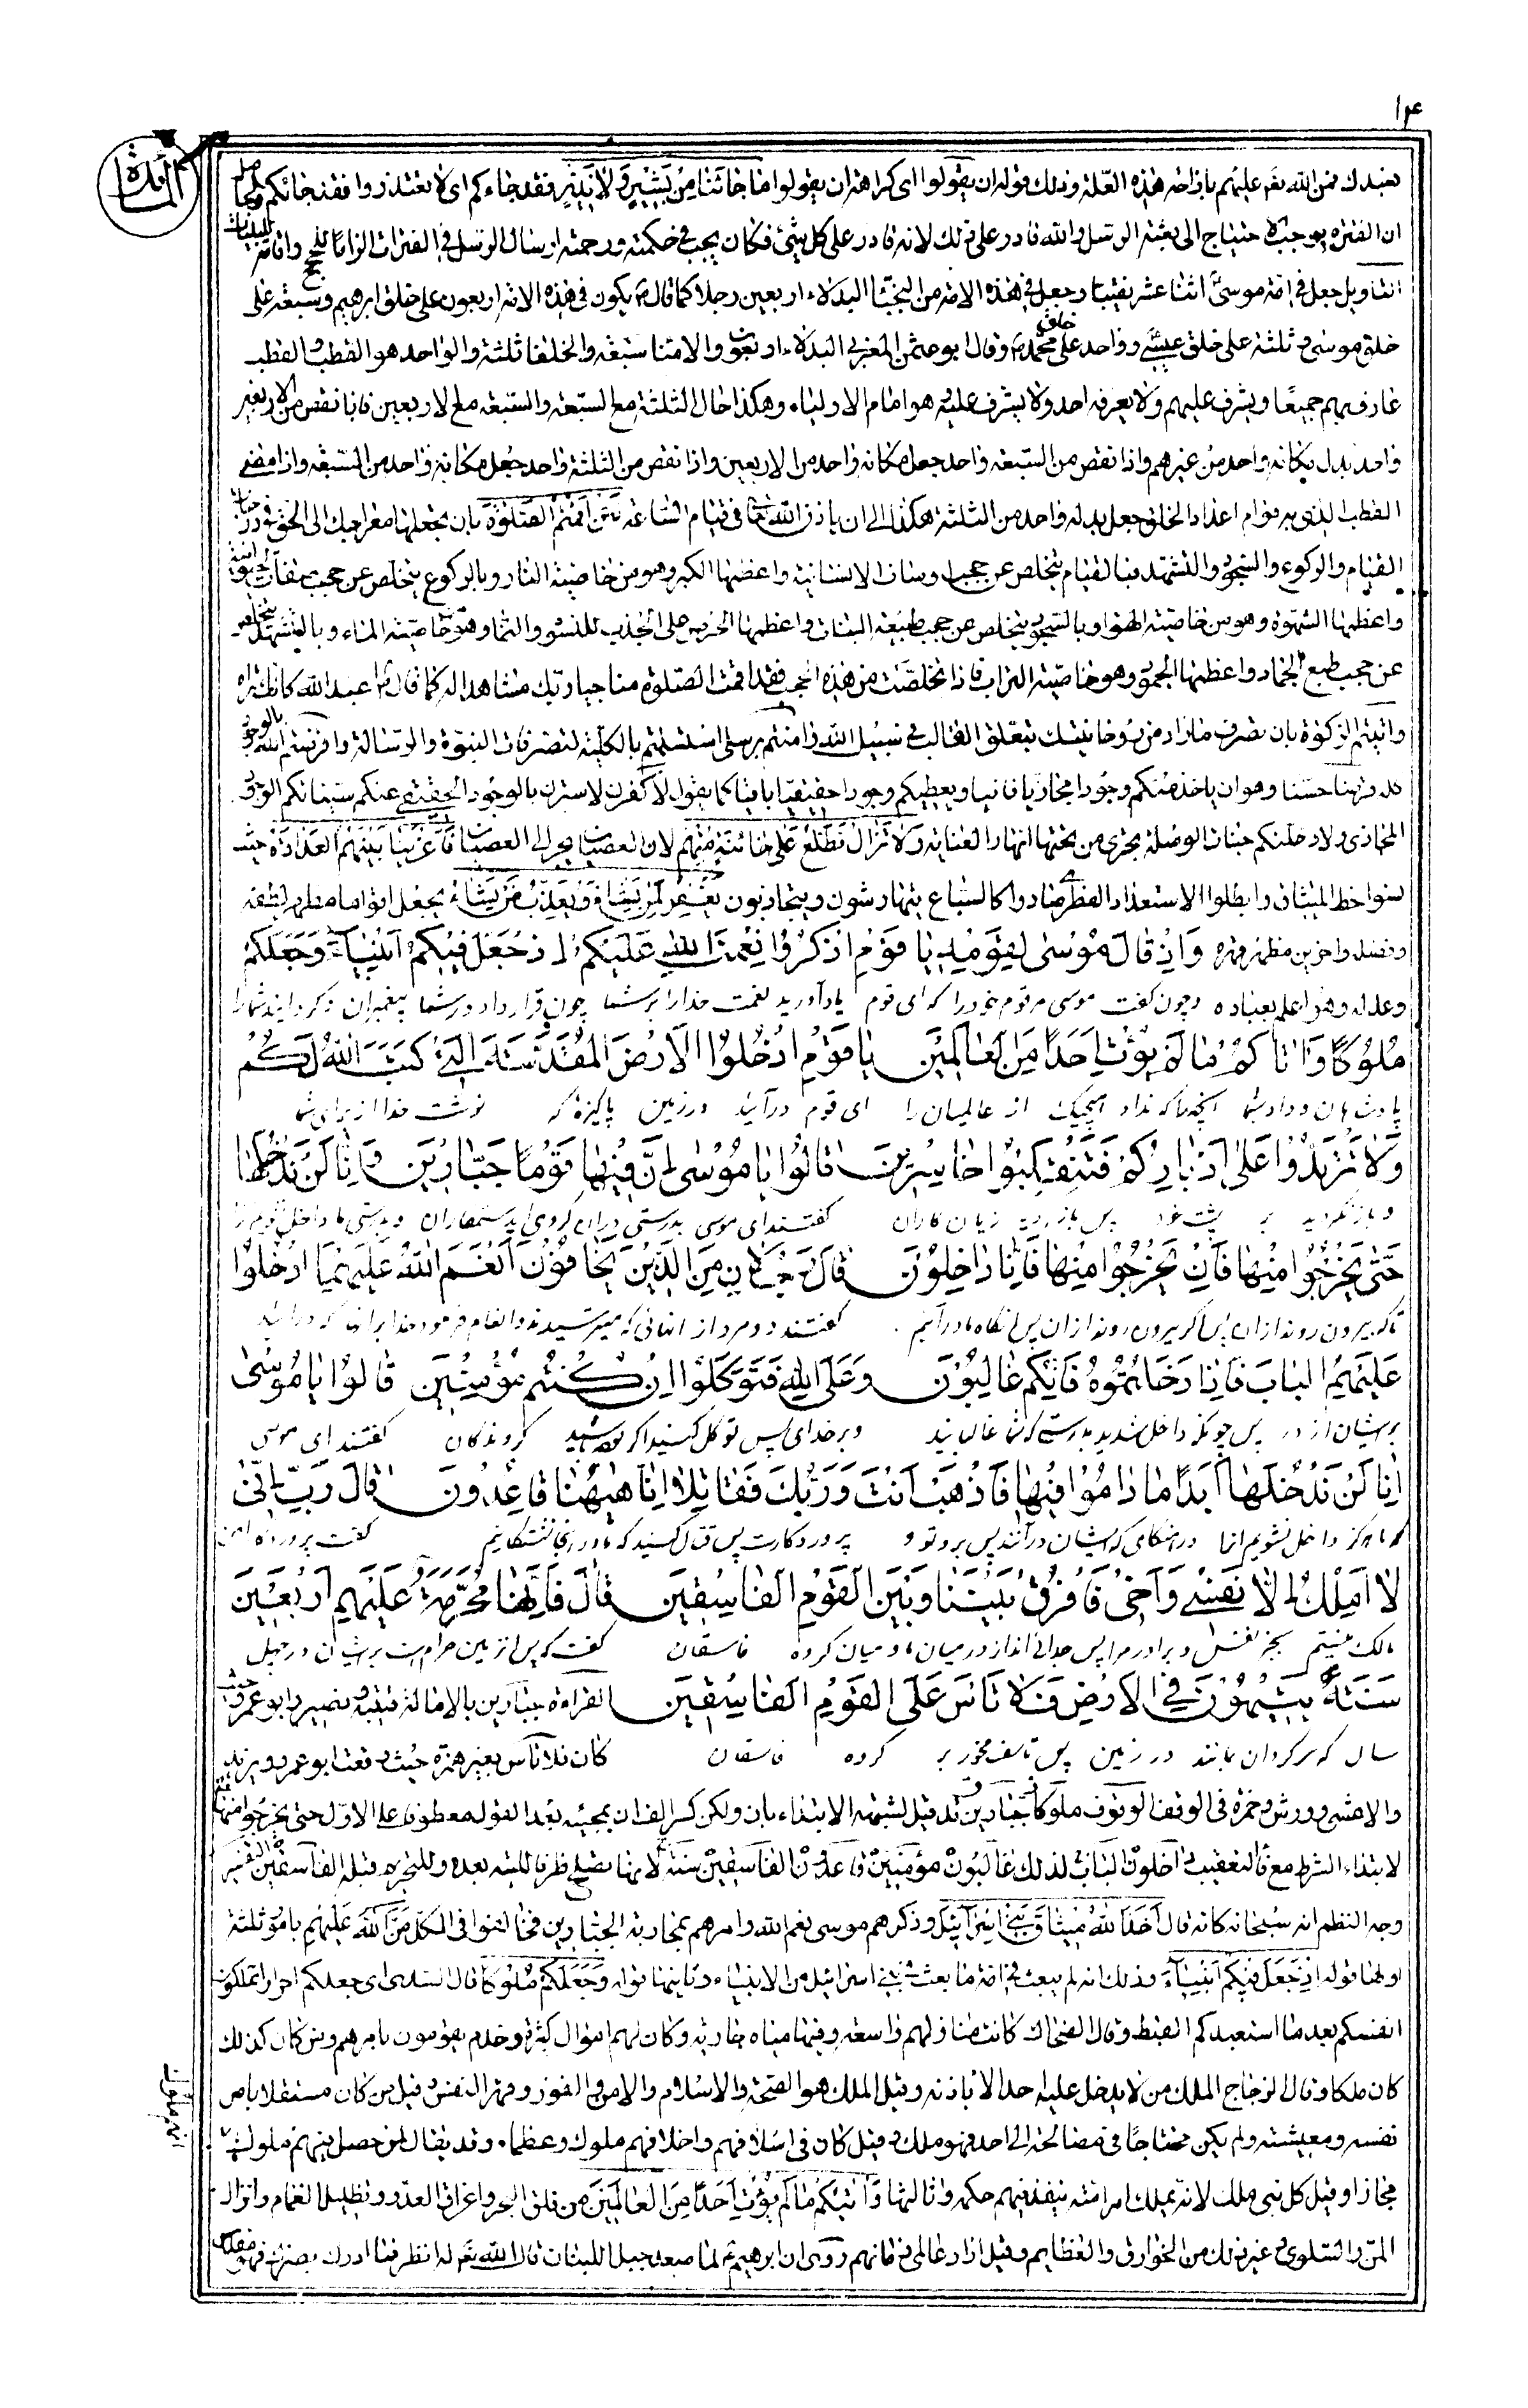 ١۴
المائدة
تعبدك فمن الله نعم عليهم بازاحة هذه العلة وذلك قوله ان يقولوا اى كراهة ان يقولوا ما جاءنا من بشير ولا نذير فقد جاءكم اى لا تعتذروا فقد جائكم
ان الفترة يوجب الاحتياج الى بعثة الرسل والله قادر على ذلك لانه قادر على كل شئ فكان يجب فى حكمته ورحمته ارسال الرسل فى الفترات الزاما للحجج واقامة للبينات
التاويل جعل فى امة موسى اثنا عشر نقيبا وجعل فى هذه الامة من النجباء البدلاء اربعين رجلا كما قال يكون فى هذه الامة اربعون على خلق ابرهيم وسبعة على
خلق موسى وثلثة على خلق عيسى وواحد على خلق محمد وقال ابو عثمن المغربى البدلاء اربعون والامنا سبعة والخلفا ثلثة والواحد هو القطب والقطب
عارف بهم جميعا ويشرف عليهم ولا يعرفه احد ولا يشرف عليه وهو امام الاولياء وهكذا حال الثلثة مع السبعة والسبعة مع الاربعين فاذا نقص من الاربعين
واحد بدل مكانه واحد من غيرهم واذا نقص من السبعة واحد جعل مكانه واحد من الاربعين واذا نقص من الثلثة واحد جعل مكانه واحد من السبعة واذا مضى
القطب الذى به قوام اعداد الخلق جعل بدله واحد من الثلثة هكذا الى ان ياذن الله تعالى فى قيام الساعة لئن اقمتم الصلوة بان تجعلها معراجك الى الحق فى درجات
القيام والركوع والسجود والتشهد فبالقيام يتخلص عن حجب اوصاف الانسانية واعظمها الكبر وهو من خاصية النار وبالركوع يتخلص عن حجب صفات الحيوانية
واعظمها الشهوة وهو من خاصية الهوا وبالسجود يتخلص عن حجب طبيعة النبات واعظمها الحرص على الجذب للنشو والنماء وهو خاصية الماء وبالتشهد يتخلص
عن حجب طبع الجماد واعظمها الجمود وهو خاصية التراب فاذا تخلصت من هذه الحجب فقد اقمت الصلوة مناجيا ربك مشاهدا له كما قال اعبد الله كانك تراه
واتيتم الزكوة بان تصرف ما زاد من روحانيتك بتعلق القالب فى سبيل الله وامنتم برسلى استسلمتم بالكلية لتصرفات النبوة والرسالة واقرضتم الله بالوجود
كله قرضا حسنا وهو ان ياخذ منكم وجودا مجازيا فانيا ويعطيكم وجودا حقيقيا باقيا كما يقول لاكفرن لاسترن بالوجود الحقيقى عنكم سيئاتكم الوجود
المجازى ولادخلنكم جنات الوصلة تجرى من تحتها انهار العناية ولا تزال تطلع على خائنة منهم لان العصيان يجر الى العصيان فاغرينا بينهم العداوة حيث
نسوا حظ الميثاق وابطلوا الاستعداد الفطرى صاروا كالسباع يتهارشون ويتجاذبون يغفر لمن يشاء ويعذب من يشاء يجعل اقواما مظهر لطفه
وفضله واخرين مظهر قهره وَاِذْ قَالَ مُوسٰى لِقَوْمِهٖ يَا قَوْمِ اذْكُرُوا نِعْمَةَ اللهِ عَلَيْكُمْ اِذْ جَعَلَ فِيكُمْ اَنْبِيَاءَ وَجَعَلَكُمْ
وعدله وهو اعلم بعباده وچون گفت موسى مر قوم خود را كه اى قوم ياد آوريد نعمت خدا را بر شما چون قرار داد در شما پيغمبران و گردانيد شما را
مُلُوكًا وَاٰتَاكُمْ مَا لَمْ يُؤْتِ اَحَدًا مِنَ الْعَالَمِينَ يَا قَوْمِ ادْخُلُوا الْاَرْضَ الْمُقَدَّسَةَ الَّتِى كَتَبَ اللهُ لَكُمْ
پادشاهان و داد شما آنچه را كه نداد هيچيك از عالميان را اى قوم درآئيد در زمين پاكيزه كه نوشت خدا از براى شما
وَلَا تَرْتَدُّوا عَلٰى اَدْبَارِكُمْ فَتَنْقَلِبُوا خَاسِرِينَ قَالُوا يَا مُوسٰى اِنَّ فِيهَا قَوْمًا جَبَّارِينَ وَاِنَّا لَنْ نَدْخُلَهَا
و باز نگرديد بر پشت خود پس باز گرديد زيان كاران گفتند اى موسى بدرستى در آن گروهى اند ستمكاران و بدرستى ما داخل نشويم
حَتّٰى يَخْرُجُوا مِنْهَا فَاِنْ يَخْرُجُوا مِنْهَا فَاِنَّا دَاخِلُونَ قَالَ رَجُلَانِ مِنَ الَّذِينَ يَخَافُونَ اَنْعَمَ اللهُ عَلَيْهِمَا ادْخُلُوا
تا كه بيرون روند از ان پس اگر بيرون روند از ان پس آنگاه ما درآئيم گفتند دو مرد از آنهائى كه ميترسيدند و انعام فرمود خدا بر آنها كه درآئيد
عَلَيْهِمُ الْبَابَ فَاِذَا دَخَلْتُمُوهُ فَاِنَّكُمْ غَالِبُونَ وَعَلَى اللهِ فَتَوَكَّلُوا اِنْ كُنْتُمْ مُؤْمِنِينَ قَالُوا يَا مُوسٰى
بر ايشان از در پس چونكه داخل شديد بدرستى كه شما غالبانيد و بر خداى پس توكل كنيد اگر بوده باشيد گروندگان گفتند اى موسى
اِنَّا لَنْ نَدْخُلَهَا اَبَدًا مَا دَامُوا فِيهَا فَاذْهَبْ اَنْتَ وَرَبُّكَ فَقَاتِلَا اِنَّا هٰيهُنَا قَاعِدُونَ قَالَ رَبِّ اِنِّى
كه ما هرگز داخل نشويم آنرا در هنگامى كه ايشان در آنند پس برو تو و پروردگارت پس قتال كنيد كه ما در اينجا نشستگانيم گفت پروردگارا من
لَا اَمْلِكُ اِلَّا نَفْسِى وَاَخِى فَافْرُقْ بَيْنَنَا وَبَيْنَ الْقَوْمِ الْفَاسِقِينَ قَالَ فَاِنَّهَا مُحَرَّمَةٌ عَلَيْهِمْ اَرْبَعِينَ
مالك نيستم بجز نفس و برادر مرا پس جدائى انداز در ميان ما و ميان گروه فاسقان گفت كه پس آن زمين حرام است بر ايشان در چهل
سَنَةً يَتِيهُونَ فِى الْاَرْضِ فَلَا تَاْسَ عَلَى الْقَوْمِ الْفَاسِقِينَ القراءة جبارين بالامالة قتيبة ونصير وابو عمرو
سال كه سرگردان بمانند در زمين پس تاسف مخور بر گروه فاسقان كان فلا تاس بغير همزة حيث وقعت ابو عمرو ويزيد
والاعشى وورش وحمزة فى الوقف الوقوف ملوكا جبارين قد قيل لشبهة الابتداء بان ولكن كسر الف ان بمجيئه بعد القول معطوف على الاول حتى يخرجوا منها
لابتداء الشرط مع فاء التعقيب داخلون الباب لذلك غالبون مؤمنين قاعدون الفاسقين سنة لانها تصلح ظرفا للتيه بعده وللتحريم قبله الفاسقين التفسير
وجه النظم انه سبحانه كانه قال اخذ الله ميثاق بنى اسرائيل وذكرهم موسى نعم الله وامرهم بمحاربة الجبارين فخالفوا فى الكل من الله عليهم بامور ثلثة
اولها قوله اذ جعل فيكم انبياء وذلك انه لم يبعث فى امة ما بعث فى بنى اسرائيل من الانبياء وثانيها قوله وجعلكم ملوكا قال السدى اى جعلكم احرارا تملكون
انفسكم بعد ما استعبدكم القبط وقال الضحاك كانت منازلهم واسعة وفيها مياه جارية وكان لهم اموال كثيرة وخدم يقومون بامرهم ومن كان كذلك
كان ملكا وقال الزجاج الملك من لا يدخل عليه احد الا باذنه وقيل الملك هو الصحة والاسلام والامن والفوز وقهر النفس وقيل من كان مستقلا بامر
نفسه ومعيشته ولم يكن محتاجا فى مصالحه الى احد فهو ملك وقيل كان فى اسلافهم واخلافهم ملوك وعظماء وقد يقال لمن حصل فيهم ملوك
مجازا وقيل كل نبى ملك لانه يملك امر امته ينفذ فيهم حكمه وثالثها واتيكم ما لم يؤت احدا من العالمين من فلق البحر واغراق العدو وتظليل الغمام وانزال
المن والسلوى وغير ذلك من الخوارق والعظايم وقيل اراد عالمى زمانهم روى ان ابرهيم لما صعد جبل لبنان قال الله تعالى له انظر فما ادرك بصرك فهو مقدس
انهم ملوك